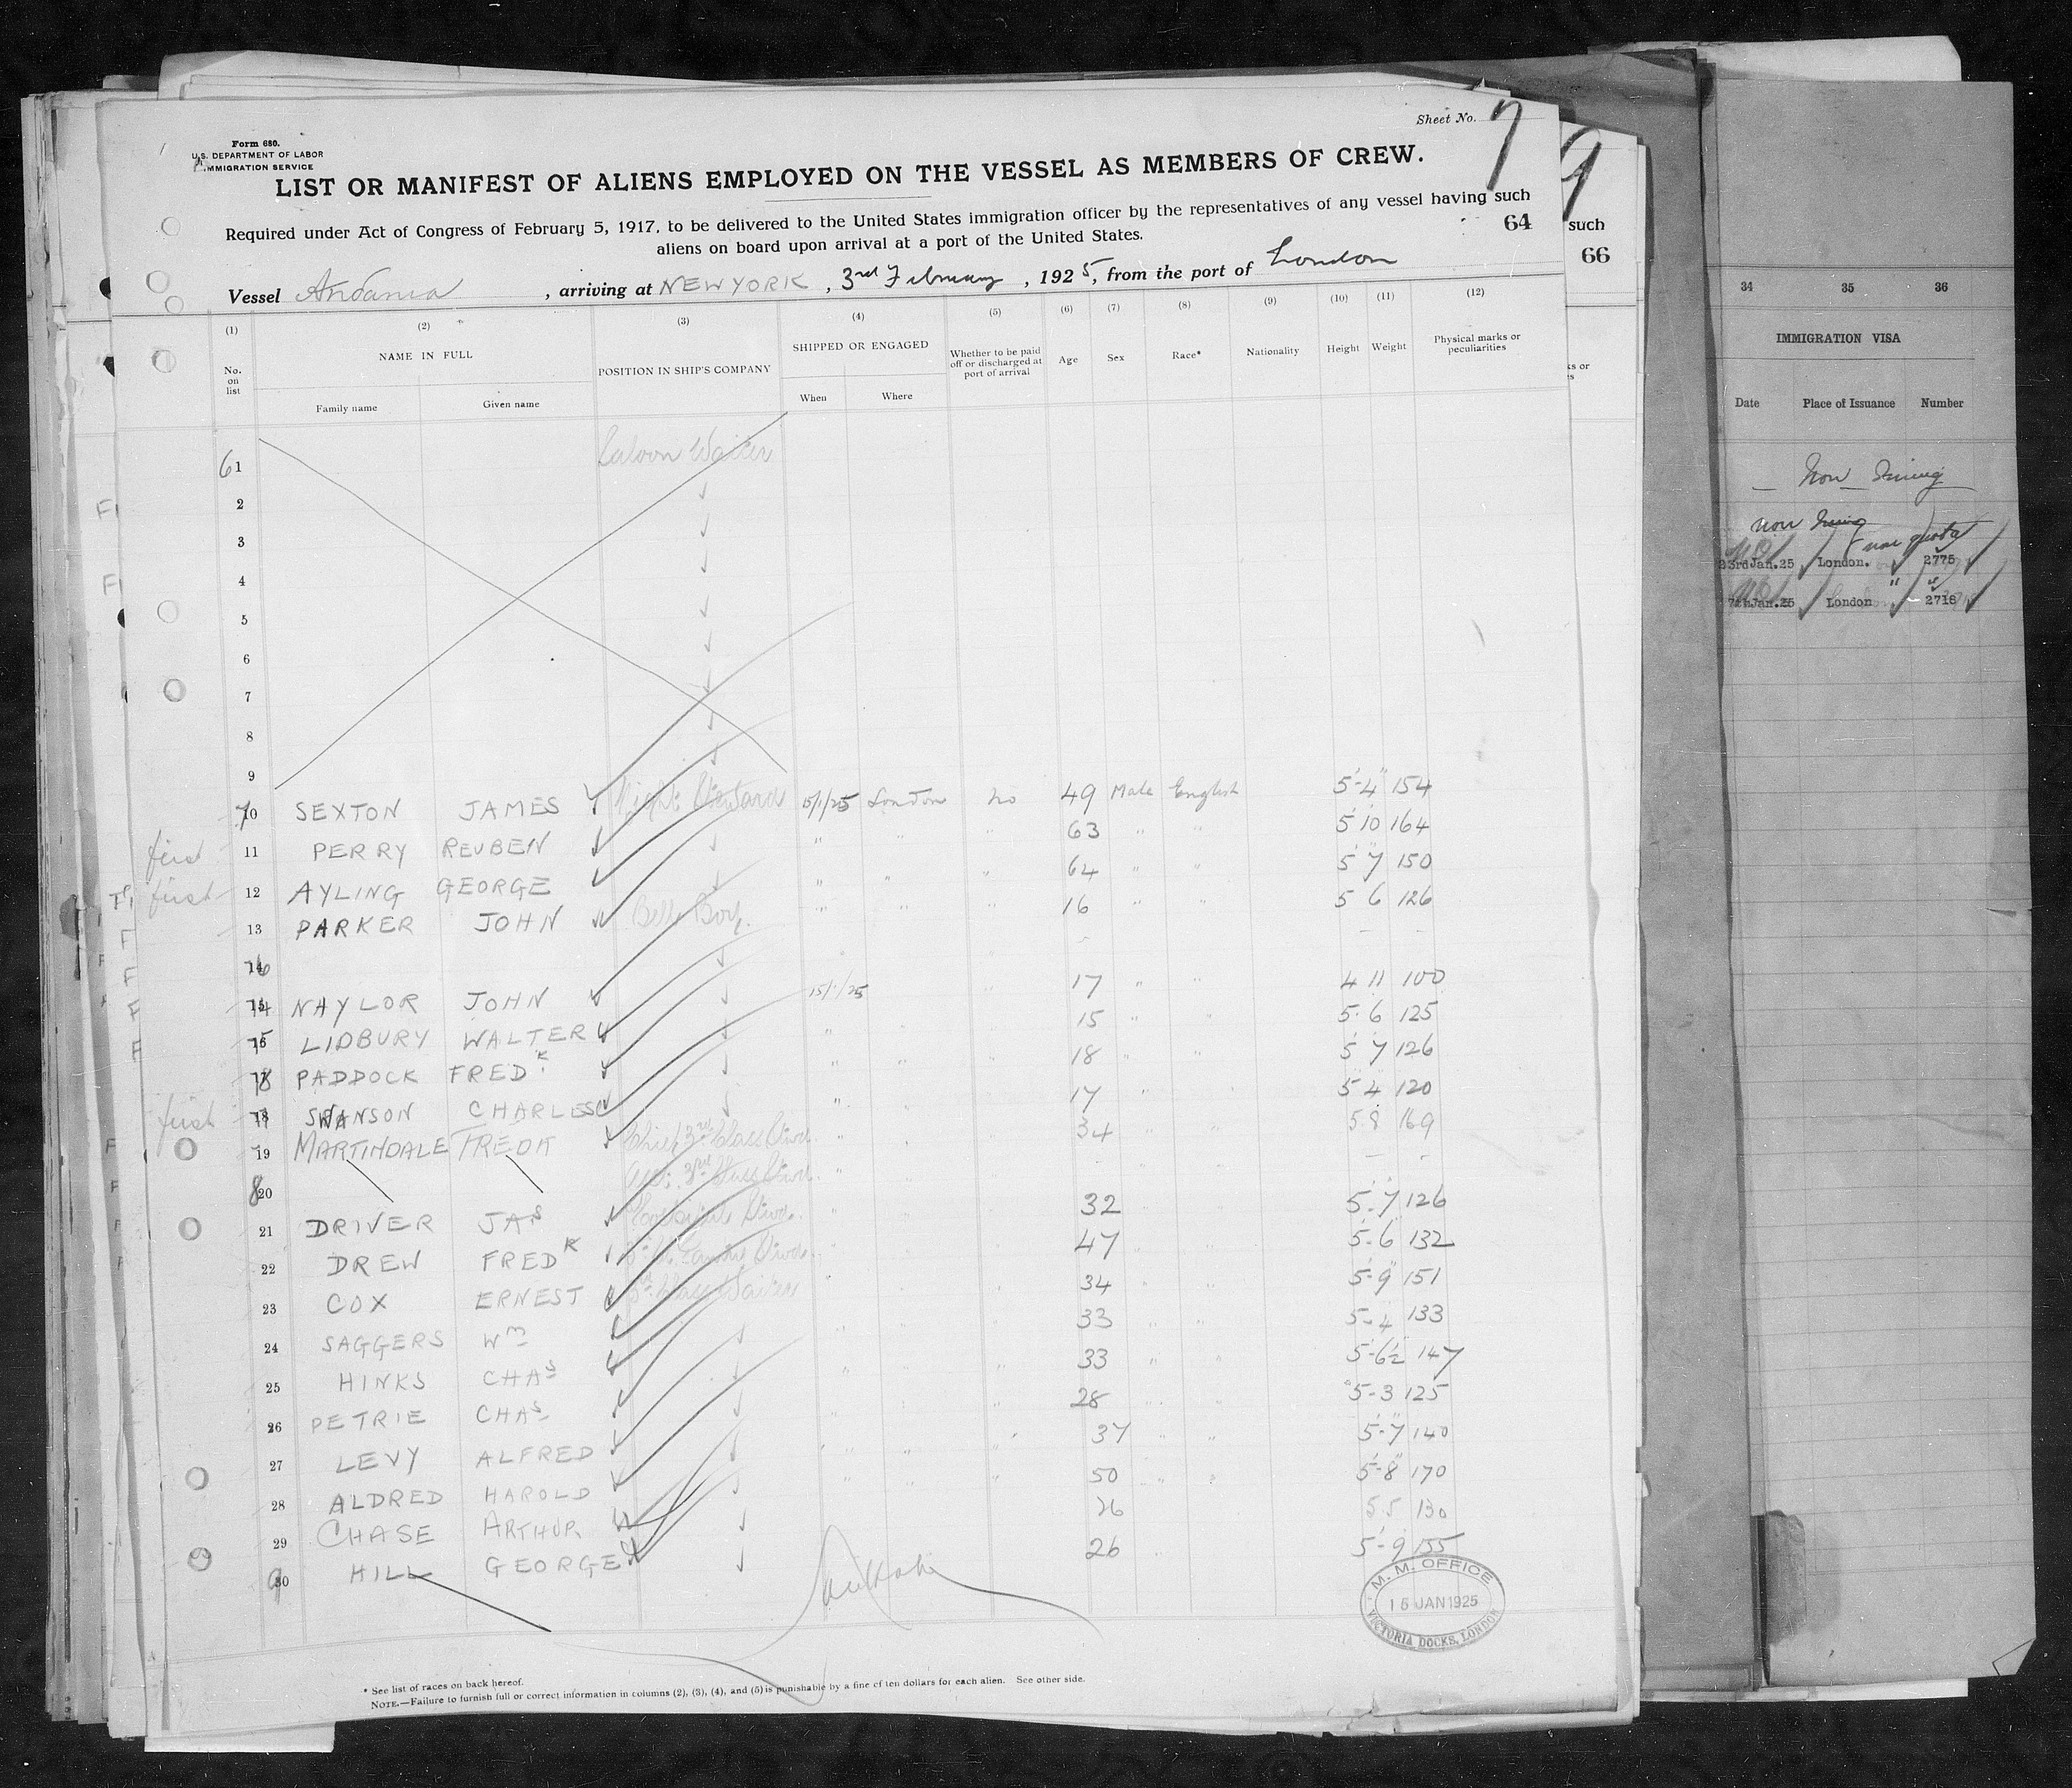 Form 680.
U.S. DEPARTMENT OF LABOR
IMMIGRATION SERVICE
Sheet No. 7
LIST OR MANIFEST OF ALIENS EMPLOYED ON THE VESSEL AS MEMBERS OF CREW.
Required under Act of Congress of February 5, 1917, to be delivered to the United States immigration officer by the representatives of any vessel having such
aliens on board upon arrival at a port of the United States.
64
Vessel Andania, arriving at NEW YORK, 3rd February, 1925, from the port of London
(1) (2) (3) (4) (5) (6) (7) (8) (9) (10) (11) (12)
No. on list NAME IN FULL POSITION IN SHIP'S COMPANY SHIPPED OR ENGAGED Whether to be paid off or discharged at port of arrival Age Sex Race* Nationality Height Weight Physical marks or peculiarities
Family name Given name When Where
61 Saloon Waiter
2
3
4
5
6
7
8
9
70 SEXTON JAMES Night Steward 15/1/25 London No 49 Male English 5'-4" 154
first 11 PERRY REUBEN " " " 63 " " 5' 10 164
first 12 AYLING GEORGE " " " 64 " " 5' 7" 150
13 PARKER JOHN Bell Boy. " " " 16 " " 5 6 126
NAYLOR JOHN 15/1/25 " 17 " " 4 11 100
LIDBURY WALTER " " " 15 " " 5-6 125
PADDOCK FREDK " " " 18 " " 5' 7 126
first 18 SWANSON CHARLES " " " 17 " " 5 4 120
19 MARTINDALE FREDK Chief 3rd Class Stwd. " " " 34 " " 5 8 169
80 3rd Class Stwd.
21 DRIVER JAS " " 32 " " 5'-7" 126
22 DREW FREDK " " 47 " " 5-6 132
23 COX ERNEST 3rd Class Waiter " " 34 " " 5-9" 151
24 SAGGERS WM " " 33 " " 5-4 133
25 HINKS CHAS " " " 33 " " 5'-6½ 147
26 PETRIE CHAS " " " 28 " " 5-3 125
27 LEVY ALFRED " " " 37 " " 5'-7" 140
28 ALDRED HAROLD " " " 50 " " 5'-8" 170
29 CHASE ARTHUR 26 5 5 130
90 HILL GEORGE 26 5'-9 155
M. M. OFFICE
15 JAN 1925
VICTORIA DOCKS, LONDON
* See list of races on back hereof.
NOTE.—Failure to furnish full or correct information in columns (2), (3), (4), and (5) is punishable by a fine of ten dollars for each alien. See other side.
9
such
66
34 35 36
IMMIGRATION VISA
Date Place of Issuance Number
Non
non
non quota
23rd Jan.25 London. 2775
7th Jan.25 London 2716